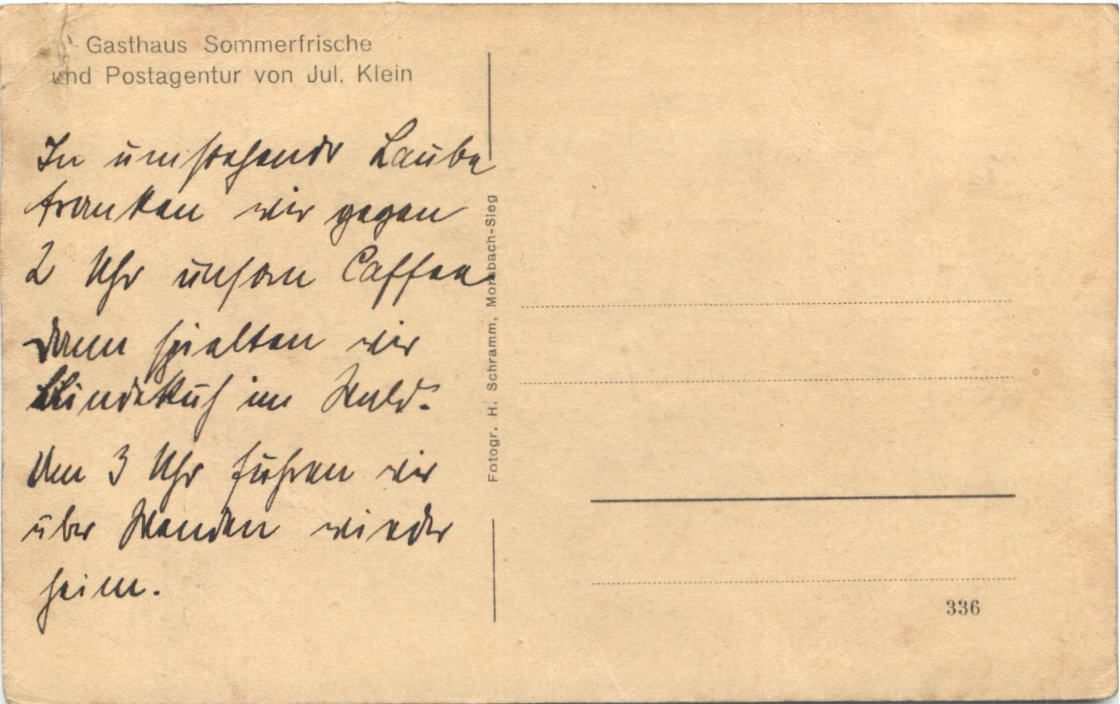 Gasthaus Sommerfrische
und Postagentur von Jul. Klein
In umstehender Laube
tranken wir gegen
2 Uhr unsern Caffee
dann spielten wir
Blindekuh im Wald.
Um 3 Uhr fuhren wir
über Wenden wieder
heim.
Fotogr. H. Schramm, Morsbach-Sieg
336